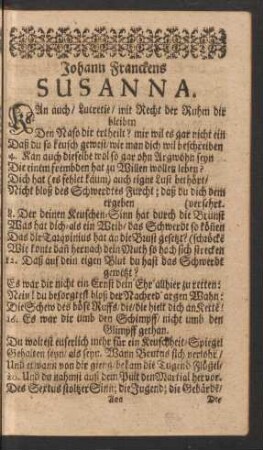 Johann Franckens
SUSANNA.
KAn auch / Lucretie / mit Recht der Ruhm dir
bleiben
Den Naso dir ertheilt? mir wil es gar nicht ein
Daß du so keusch gewest / wie man dich wil beschreiben
4. Kan auch dieselbe wol so gar ohn Argwohn seyn
Die einem frembden hat zu Willen wollen leben?
Dich hat (es fehlet kaum) auch eigne Lust berhört /
Nicht bloß des Schwerdtes Furcht; daß du dich dem
ergeben (versehrt.
8. Der deinen Keuschen-Sinn hat durch die Brunst
Was hat dich / als ein Weib / das Schwerdt so können
Das die Tarquinius hat an die Brust gesetzt? (schröckē
Wie konte dañ hernach dein Muth so hoch sich strecken
12. Daß auf dein eigen Blut du hast das Schwerdt
gewetzt?
Es war dir nicht ein Ernst dein Ehr' allhier zu retten:
Nein! du besorgtest bloß der Nachred' argen Wahn:
Die Schew des böse Ruffs / die / die hielt dich an Kette!
16. Es war dir umb den Schimpff / nicht umb den
Glimpff gethan.
Du woltest euserlich mehr für ein Keuschheit / Spiegel
Gehalten seyn / als seyn. Wann Brutus sich verlohr /
Und etwann von dir gieng / bekam die Tugend Flügel /
20. Und du nahmst auß dem Pült den Martial hervor.
Des Sextus stoltzer Sinn; die Jugend; die Gebärde /
Die